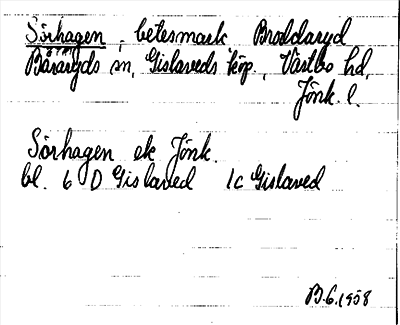 Sörhagen, betesmark Broddaryd
Båraryds sn, Gislaveds köp., Västbo hd,
Jönk. l.
Sörhagen ek Jönk.
bl. 6 D Gislaved 1c Gislaved
B.G. 1958